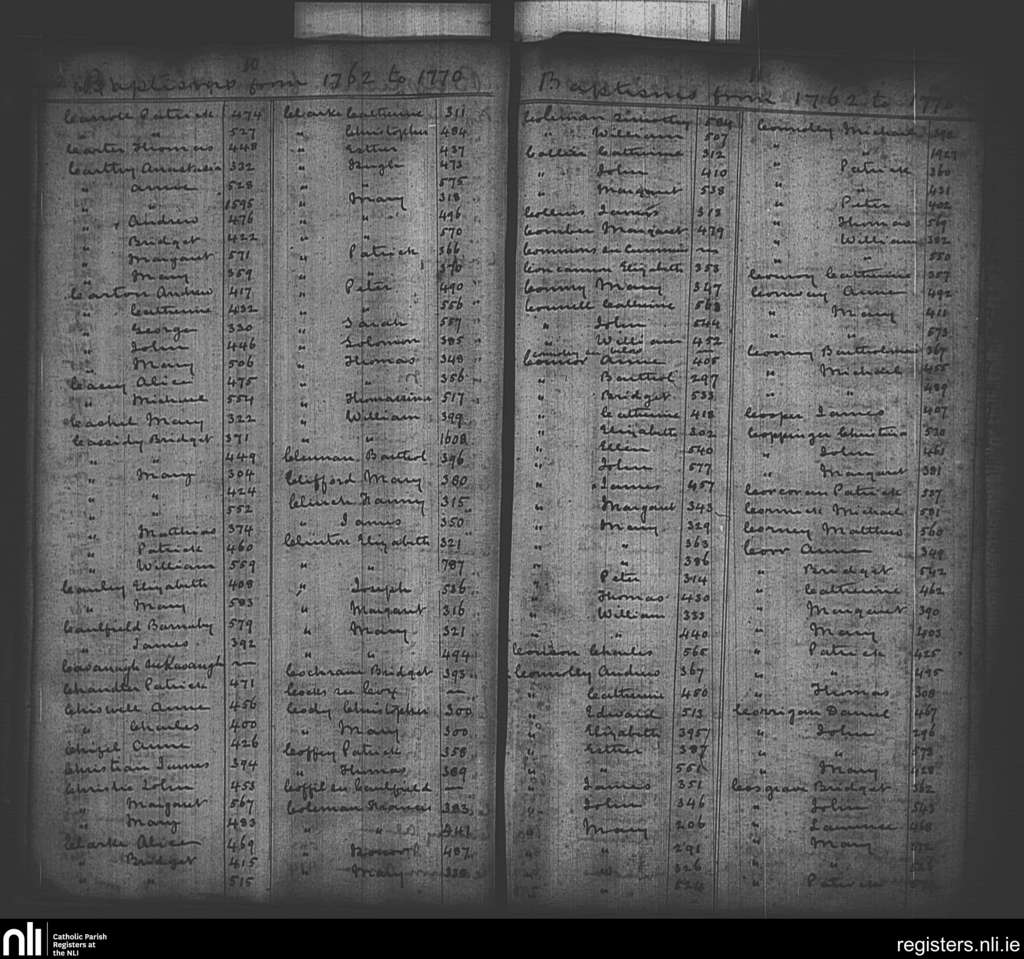 10
Baptisms from 1762 to 1770
Carroll Patrick 474
" " 527
Carter Thomas 448
Carthy Annastasia 332
" Anne 528
" " 1595
" Andrew 476
" Bridget 422
" Margaret 571
" Mary 359
Carton Andrew 417
" Catherine 432
" George 320
" John 446
" Mary 506
Casey Alice 475
" Michael 554
Cashel Mary 322
Cassidy Bridget 371
" " 449
" Mary 304
" " 424
" " 552
" Matthias 374
" Patrick 460
" William 559
Cauley Elizabeth 408
" Mary 583
Caulfield Barnaby 579
" James 392
Cavanagh see Kavanagh —
Chandler Patrick 471
Chiswell Anne 456
" Charles 400
Anne 426
Christian James 394
Christie John 453
" Margaret 567
" Mary 483
Clarke Alice 469
" Bridget 415
" " 515
Clarke Catherine 311
" Christopher 484
" Esther 437
" Hugh 473
" " 575
" Mary 318
" " 496
" " 570
" Patrick 366
" " 370
" Peter 490
" " 556
" Sarah 557
" Solomon 385
" Thomas 348
" " 356
" Thomasina 517
" William 399
" " 1608
Clennan Barthol 396
Clifford Mary 380
Clinch Fanny 315
" James 350
Clinton Elizabeth 321
" " 787
" Joseph 536
" Margaret 316
" Mary 321
" " 494
Cochram Bridget 393
Cocks see Cox —
Cody Christopher 300
" Mary 300
Coffey Patrick 358
" Thomas 389
Coffil see Caulfield —
Coleman 383
" "
" Honor 487
" Mary
Baptisms from 1762 to 1770
Coleman Timothy 584
" William 507
Collier Catherine 312
" John 410
" Margaret 538
Collins James 313
Comber Margaret 479
Commons see Cummins —
Concannon Elizabeth 353
Conmy Mary 347
Connell Catherine 563
" John 544
" William 452
Connolly see below —
Connor Anne 405
" Barthol 297
" Bridget 533
" Catherine 418
" Elizabeth 302
" Ellen 540
" John 577
" James 457
" Margaret 343
" Mary 329
" " 363
" " 386
" Peter 314
" Thomas 430
" William 333
" " 440
Conron Charles 565
Connolly Andrew 367
" Catherine 450
" Edward 513
" Elizabeth 3957
" Esther 387
" " 551
" James 351
" John 346
" Mary 206
" " 291
" " 326
" " 524
Connolly Michael 392
" " 1927
" Patrick 360
" " 431
" Peter 402
" Thomas 569
" William 382
" " 550
Conroy Catherine 357
Conway Anne 492
" Mary 411
" " 573
Cooney Bartholomew 367
" Michael 455
" " 489
Cooper James 407
Coppinger Christina 530
" John 461
" Margaret 381
Corcoran Patrick 537
Cormick Michael 581
Corney Matthew 560
Corr Anne 349
" Bridget 542
" Catherine 462
" Margaret 390
" Mary 403
" Patrick 425
" " 495
" Thomas 308
Corrigan Daniel 467
" John 296
" " 573
" Mary 428
Cosgrave Bridget 562
" John 563
" Laurence 468
" Mary
" "
" Patrick
nli
Catholic Parish
Registers at
the NLI
registers.nli.ie